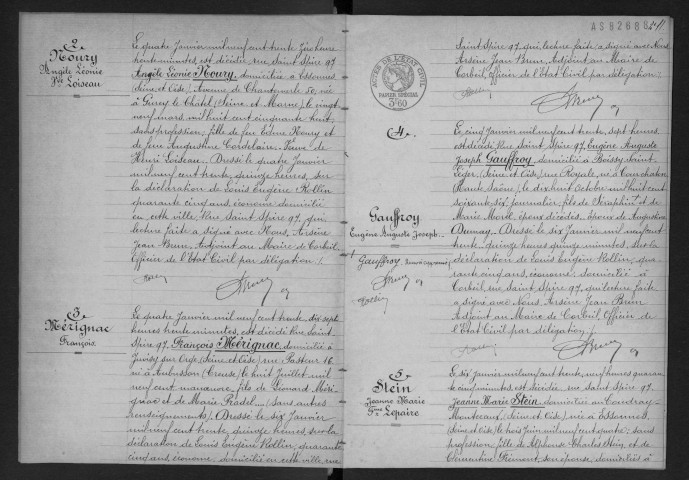 2
Noury
Angèle Léonie
Vve Loiseau
Le quatre Janvier mil neuf cent trente, dix heures
trente minutes, est décédée, rue Saint Spire 97
Angèle Léonie Noury, domiciliée à Essonnes
(Seine et Oise), Avenue de Chantemerle 50, née
à Gurcy le Châtel (Seine et Marne), le vingt
neuf mars, mil huit cent cinquante huit,
sans profession; fille de feu Edme Noury et
de feue Augustine Cordelain. Veuve de
Henri Loiseau. Dressé le quatre Janvier
mil neuf cent trente, quinze heures, sur
la déclaration de Louis Eugène Rollin
quarante cinq ans, économe domicilié
en cette ville, Rue Saint Spire 97, qui,
lecture faite a signé avec Nous, Arsène
Jean Brun, Adjoint au Maire de Corbeil,
Officier de l'Etat Civil par délégation /.
3
Mérignac
François
Le quatre Janvier mil neuf cent trente, dix sept
heures trente minutes, est décédé Rue Saint
Spire 97, François Mérignac, domicilié à
Juvisy sur Orge, (Seine et Oise) rue Pasteur 16
né à Aubusson (Creuse) le huit Juillet mil
neuf cent manœuvre, fils de Léonard Méri-
gnac et de Marie Radel... (sans autres
renseignements). Dressé le six Janvier
mil neuf cent trente, quinze heures, sur la
déclaration de Louis Eugène Rollin, quarante
cinq ans, économe, domicilié en cette ville, rue
AS 82688
Saint Spire 97, qui, lecture faite a signé avec Nous
Arsène Jean Brun, Adjoint au Maire de
Corbeil, Officier de l'Etat Civil par délégation /.
ACTES DE L'ETAT CIVIL
PAPIER SPÉCIAL
3F60
4
Gauffroy
Eugène Auguste Joseph
Le cinq Janvier mil neuf cent trente, sept heures
est décédé Rue Saint Spire 97, Eugène Auguste
Joseph Gauffroy, domicilié à Boissy Saint
Léger, (Seine et Oise) rue Royale, né à Courchaton
Haute Saône), le dix huit Octobre mil huit cent
soixante six, journalier, fils de Séraphin et de
Marie Morel, époux décédés. Epoux de Augustine
Dumay. Dressé le six Janvier mil neuf cent
trente, quinze heures quinze minutes, sur la
déclaration de Louis Eugène Rollin, qua-
rante cinq ans, économe; domicilié à
Corbeil, rue Saint Spire 97, qui lecture faite
a signé avec Nous, Arsène Jean Brun
Adjoint au Maire de Corbeil, Officier de
l'Etat Civil par délégation /.
+ Gauffroy
5
Stein
Jeanne Marie
Fme Lepaire
Le six janvier mil neuf cent trente, neuf heures quaran-
te cinq minutes, est décédée, rue Saint Spire 97,
Jeanne Marie Stein, domiciliée au Coudray-
Montceaux, (Seine et Oise), née à Essonnes,
Seine et Oise, le trois juin mil neuf cent quatre; sans
profession, fille de Alphonse Charles Stein, et de
Clémentine Frémont, son épouse, domiciliés à